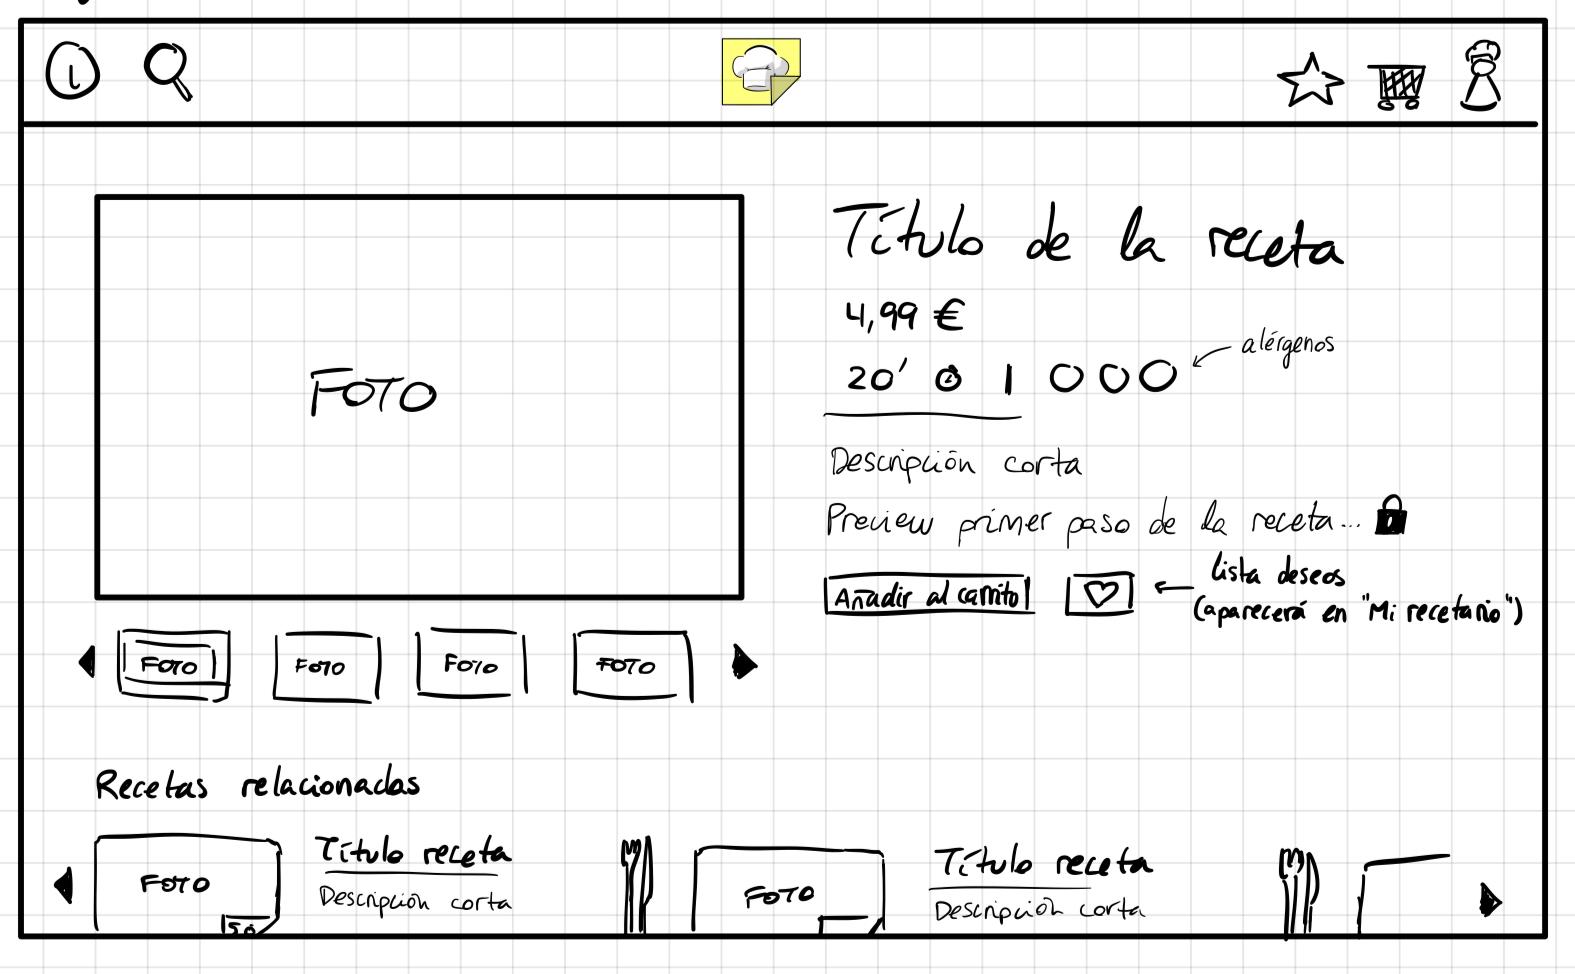 i
Título de la receta
4,99 €
20' | O O O
alérgenos
Descripción corta
Preview primer paso de la receta...
Añadir al carrito
lista deseos
(aparecerá en "Mi recetario")
FOTO
FOTO FOTO FOTO FOTO
Recetas relacionadas
FOTO
Título receta
Descripción corta
FOTO
Título receta
Descripción corta